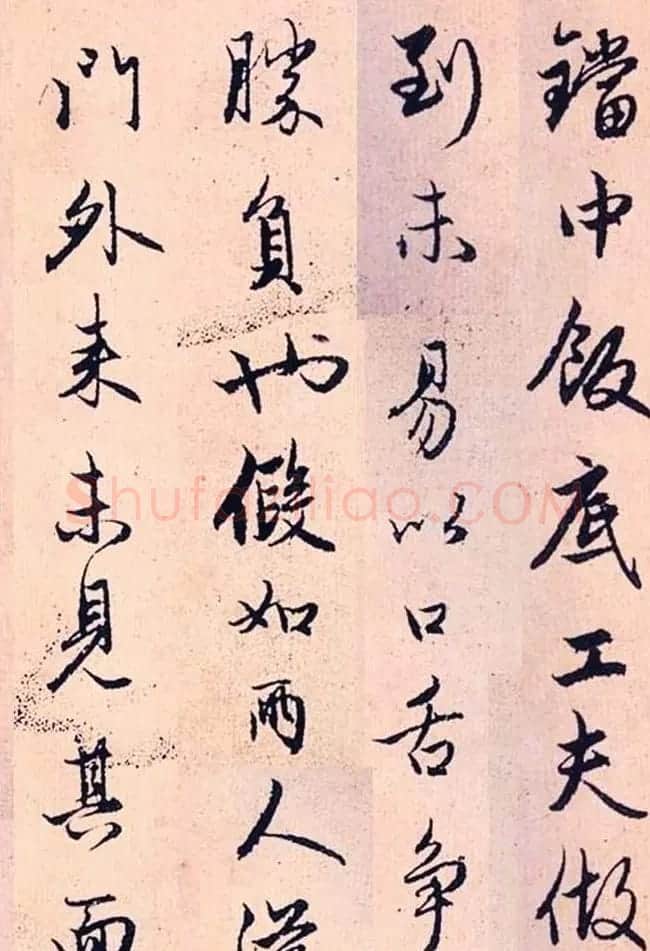 鐺中飯底工夫做
到未易以口舌争
勝負也假如兩人從
門外来未見其面
Shufaziliao.COM